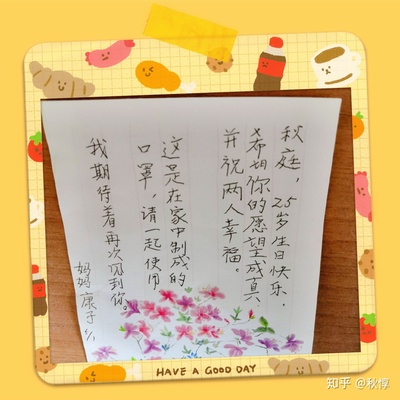 秋庭，25岁生日快乐，
希望你的愿望成真，
并祝两人幸福。
这是在家中制成的
口罩，请一起使用
我期待着再次见到你。
妈妈康子
HAVE A GOOD DAY
知乎 @秋惇